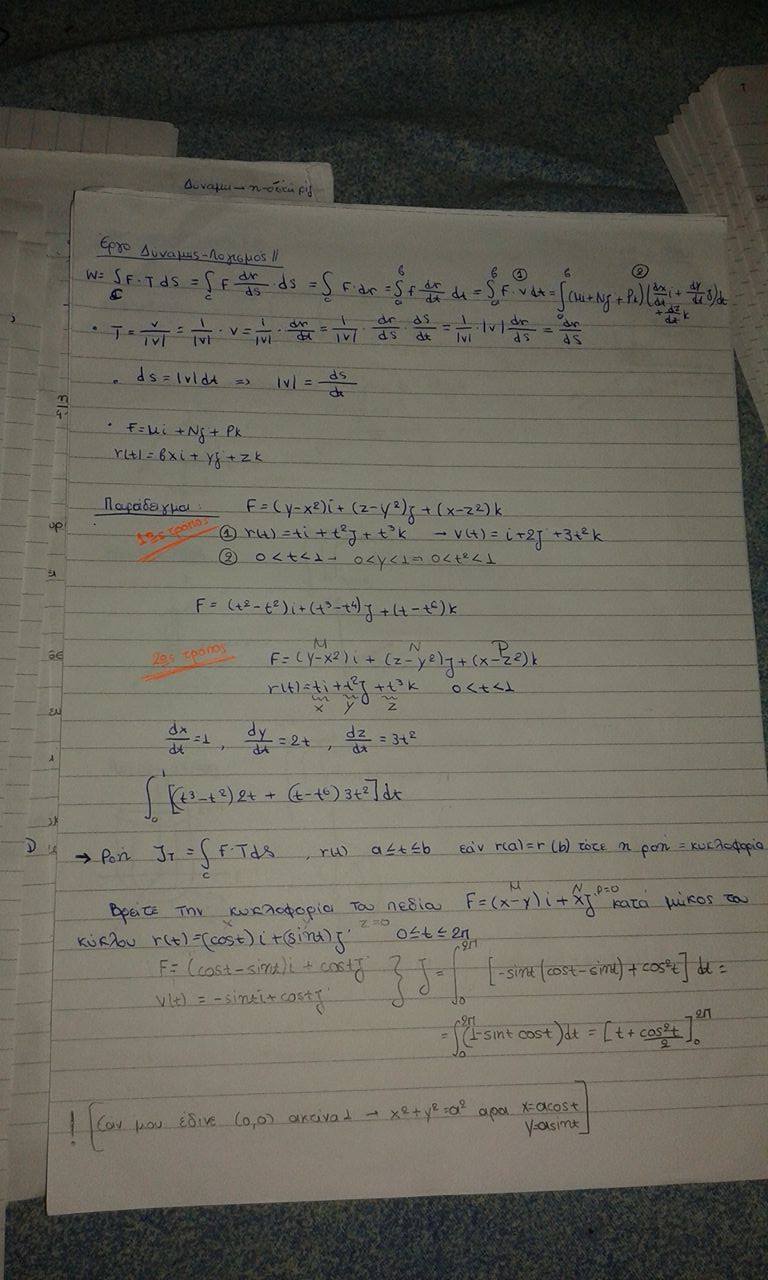 Δυναμη
Έργο Δύναμης-Λογισμός II
W = ∫_C F·T dS = ∫_C F dr/ds · ds = ∫_C F·dr = ∫_a^b F dr/dt dt = ∫_a^b F·v dt = ∫_a^b (Mi+Nj+Pk)(dx/dt i + dy/dt j + dz/dt k)dt
① ②
· T = v/|v| = 1/|v| · v = 1/|v| · dr/dt = 1/|v| · dr/ds · ds/dt = 1/|v| · |v| dr/ds = dr/ds
· ds = |v|dt => |v| = ds/dt
· F=Mi+Nj+Pk
r(t)=xi+yj+zk
Παράδειγμα: F=(y-x²)i+(z-y²)j+(x-z²)k
1ος τρόπος ① r(t)=ti+t²j+t³k → v(t)=i+2j+3t²k
② 0<t<1 → 0<y<1 → 0<t²<1
F=(t²-t²)i+(t³-t⁴)j+(t-t⁶)k
2ος τρόπος F=(y-x²)i+(z-y²)j+(x-z²)k
M N P
r(t)=ti+t²j+t³k 0<t<1
x y z
dx/dt=1, dy/dt=2t, dz/dt=3t²
∫_0^1 [(t³-t²)2t+(t-t⁶)3t²]dt
→ Ροή J_T=∫_C F·T dS, r(t) a≤t≤b εάν r(a)=r(b) τότε η ροή = κυκλοφορία
Βρείτε την κυκλοφορία του πεδίου F=(x-y)i+xj κατά μίκος του
M N P=0
κύκλου r(t)=(cost)i+(sint)j 0≤t≤2π
x y z=0
F=(cost-sint)i+costj
v(t)=-sinti+costj } J=∫_0^2π [-sint(cost-sint)+cos²t]dt=
=∫_0^2π (1-sint cost)dt=[t+cos²t/2]_0^2π
! [αν μου έδινε (0,0) ακτίνα 1 → x²+y²=a² αρα x=acost
y=asint]